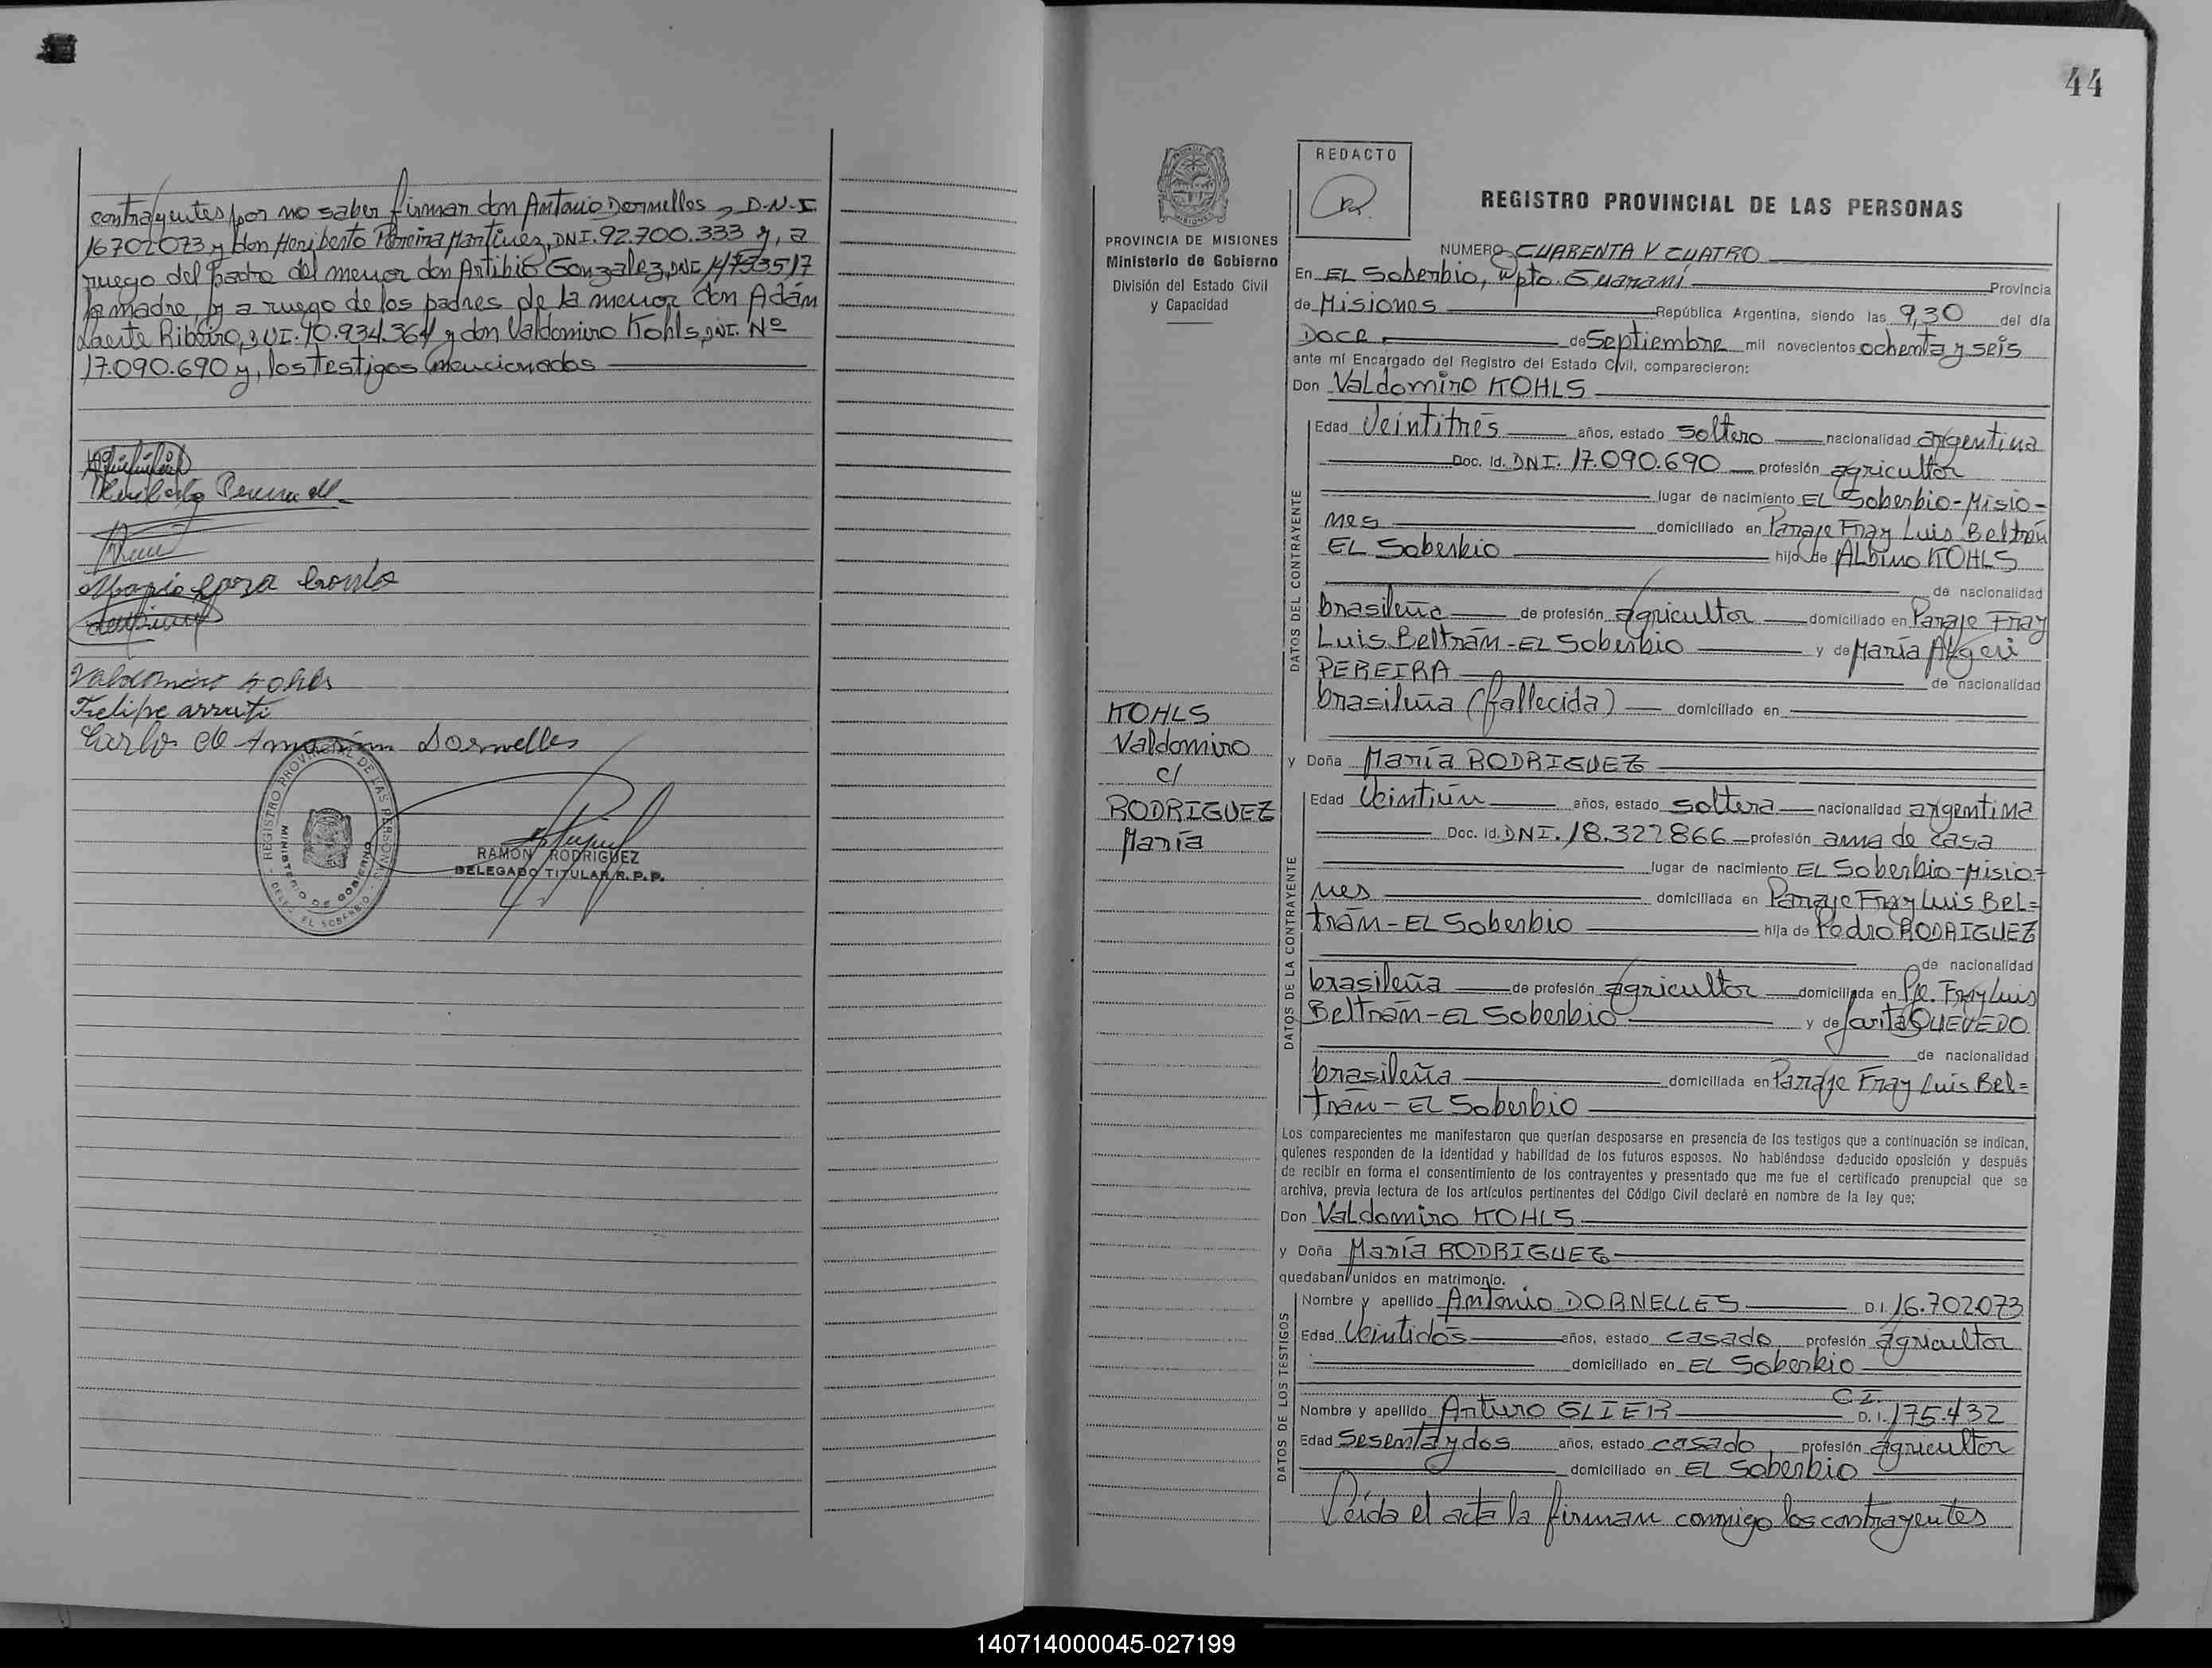 contrayentes por no saber firman don Antonio Dornelles, D.N.I.
16702073 y don Heriberto Pereira Martinez, DNI. 92.700.333 y, a
ruego del padre del menor don Artibio Gonzalez, DNI
la madre, y a ruego de los padres de la menor don Adán
Laerte Ribeiro, DNI. 40.934.364 y don Valdomiro Kohls, DNI. Nº
17.090.690 y, los testigos mencionados
Heriberto Pereira M.
Valdomiro Kohls
Felipe arruti
Carlos de Dornelles
REGISTRO PROVINCIAL DE LAS PERSONAS
MINISTERIO DE GOBIERNO
DELEG. EL SOBERBIO
RAMON RODRIGUEZ
DELEGADO TITULAR R.P.P.
44
PROVINCIA DE MISIONES
Ministerio de Gobierno
División del Estado Civil
y Capacidad
REDACTO
REGISTRO PROVINCIAL DE LAS PERSONAS
NUMERO CUARENTA Y CUATRO
En EL Soberbio, Dpto. Guaraní Provincia
de Misiones República Argentina, siendo las 9,30 del día
DOCE de Septiembre mil novecientos ochenta y seis
ante mí Encargado del Registro del Estado Civil, comparecieron:
Don Valdomiro KOHLS
DATOS DEL CONTRAYENTE
Edad Veintitrés años, estado soltero nacionalidad argentina
Doc. Id. DNI. 17.090.690 profesión agricultor
lugar de nacimiento EL Soberbio-Misio-
nes domiciliado en Paraje Fray Luis Beltrán
EL Soberbio hijo de Albino KOHLS
de nacionalidad
brasileña de profesión agricultor domiciliado en Paraje Fray
Luis Beltrán-EL Soberbio y de María
PEREIRA de nacionalidad
brasileña (fallecida) domiciliado en
KOHLS
Valdomiro
c/
RODRIGUEZ
María
y Doña María RODRIGUEZ
DATOS DE LA CONTRAYENTE
Edad Veintiún años, estado soltera nacionalidad argentina
Doc. Id. DNI. 18.322866 profesión ama de casa
lugar de nacimiento EL Soberbio-Misio-
nes domiciliada en Paraje Fray Luis Bel=
trán-EL Soberbio hija de Pedro RODRIGUEZ
de nacionalidad
brasileña de profesión agricultor domiciliada en Pje. Fray Luis
Beltrán-EL Soberbio y de Jarita QUEVEDO
de nacionalidad
brasileña domiciliada en Paraje Fray Luis Bel=
trán-EL Soberbio
Los comparecientes me manifestaron que querían desposarse en presencia de los testigos que a continuación se indican,
quienes responden de la identidad y habilidad de los futuros esposos. No habiéndose deducido oposición y después
de recibir en forma el consentimiento de los contrayentes y presentado que me fue el certificado prenupcial que se
archiva, previa lectura de los artículos pertinentes del Código Civil declaré en nombre de la ley que;
Don Valdomiro KOHLS
y Doña María RODRIGUEZ
quedaban unidos en matrimonio.
DATOS DE LOS TESTIGOS
Nombre y apellido Antonio DORNELLES D.I. 16.702.073
Edad Veintidós años, estado casado profesión agricultor
domiciliado en EL Soberbio
C.I.
Nombre y apellido Arturo GLIER D.I. 175.432
Edad Sesenta y dos años, estado casado, profesión agricultor
domiciliado en EL Soberbio
Leida el acta la firman conmigo los contrayentes
140714000045-027199